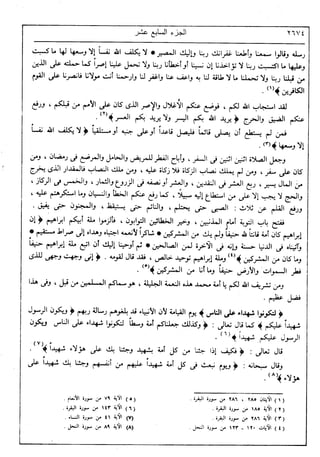 ٢٦٧٤
الجزء السابع عشر
رسله وقالوا سمعنا وأطعنا غفرانك ربنا وإليك المصير * لا يكلف الله نفساً إلا وسعها لها ما كسبت
وعليها ما اكتسبت ربنا لا تؤاخذنا إن نسينا أو أخطأنا ربنا ولا تحمل علينا إصراً كما حملته على الذين
من قبلنا ربنا ولا تحملنا ما لا طاقة لنا به واعف عنا واغفر لنا وارحمنا أنت مولانا فانصرنا على القوم
الكافرين ﴾(١).
لقد استجاب الله لكم، فوضع عنكم الأغلال والإصر الذي كان على الأمم من قبلكم، ورفع
عنكم الضيق والحرج ﴿ يريد الله بكم اليسر ولا يريد بكم العسر ﴾(٢).
فمن لم يستطع أن يصلي قائماً فليصل قاعداً أو على جنبه أو مستلقياً ﴿ لا يكلف الله نفساً
إلا وسعها ﴾(٣).
وجعل الصلاة اثنين اثنين في السفر، وأباح الفطر للمريض والحامل والمرضع في رمضان، ومن
كان على سفر، ومن لم يملك نصاب الزكاة فلا زكاة عليه، ومن ملك النصاب فالمقدار الذي يخرج
من المال يسير، ربع العشر في النقدين، والعشر أو نصفه في الزروع والثمار، والخمس في الركاز،
والحج لا يجب إلا على من استطاع إليه سبيلاً، كما رفع عنكم الخطأ والنسيان وما استكرهتم عليه،
ورفع القلم عن ثلاث: الصبي حتى يحتلم، والنائم حتى يستيقظ، والمجنون حتى يفيق.
ففتح باب التوبة أمام المذنبين، وخير الخطائين التوابون، فالزموا ملة أبيكم ابراهيم ﴿ إن
إبراهيم كان أمة قانتاً لله حنيفاً ولم يك من المشركين * شاكراً لأنعمه اجتباه وهداه إلى صراط مستقيم *
وآتيناه في الدنيا حسنة وإنه في الآخرة لمن الصالحين * ثم أوحينا إليك أن اتبع ملة إبراهيم حنيفاً
وما كان من المشركين ﴾(٤) وملة إبراهيم توحيد خالص، فقد قال لقومه. ﴿ إني وجهت وجهي للذي
فطر السموات والأرض حنيفاً وما أنا من المشركين ﴾(٥).
ومن تشريف الله لكم يا أمة محمد هذه النعمة الجليلة، هو سماكم المسلمين من قبل، وفي هذا
فضل عظيم.
﴿ لتكونوا شهداء على الناس ﴾ يوم القيامة لأن الأنبياء قد بلغوهم رسالة ربهم ﴿ ويكون الرسول
شهيداً عليكم ﴾ كما قال تعالى: ﴿ وكذلك جعلناكم أمة وسطاً لتكونوا شهداء على الناس ويكون
الرسول عليكم شهيداً ﴾(٦).
قال تعالى: ﴿ فكيف إذا جئنا من كل أمة بشهيد وجئنا بك على هؤلاء شهيداً ﴾(٧).
وقال سبحانه: ﴿ ويوم نبعث في كل أمة شهيداً عليهم من أنفسهم وجئنا بك شهيداً على
هؤلاء ﴾(٨).
(١) الآيتان ٢٨٥، ٢٨٦ من سورة البقرة.
(٢) الآية ١٨٥ من سورة البقرة.
(٣) الآية ٢٨٦ من سورة البقرة.
(٤) الآيات ١٢٠ ـ ١٢٣ من سورة النحل.
(٥) الآية ٧٩ من سورة الأنعام.
(٦) الآية ١٤٣ من سورة البقرة.
(٧) الآية ٤١ من سورة النساء.
(٨) الآية ٨٩ من سورة النحل.